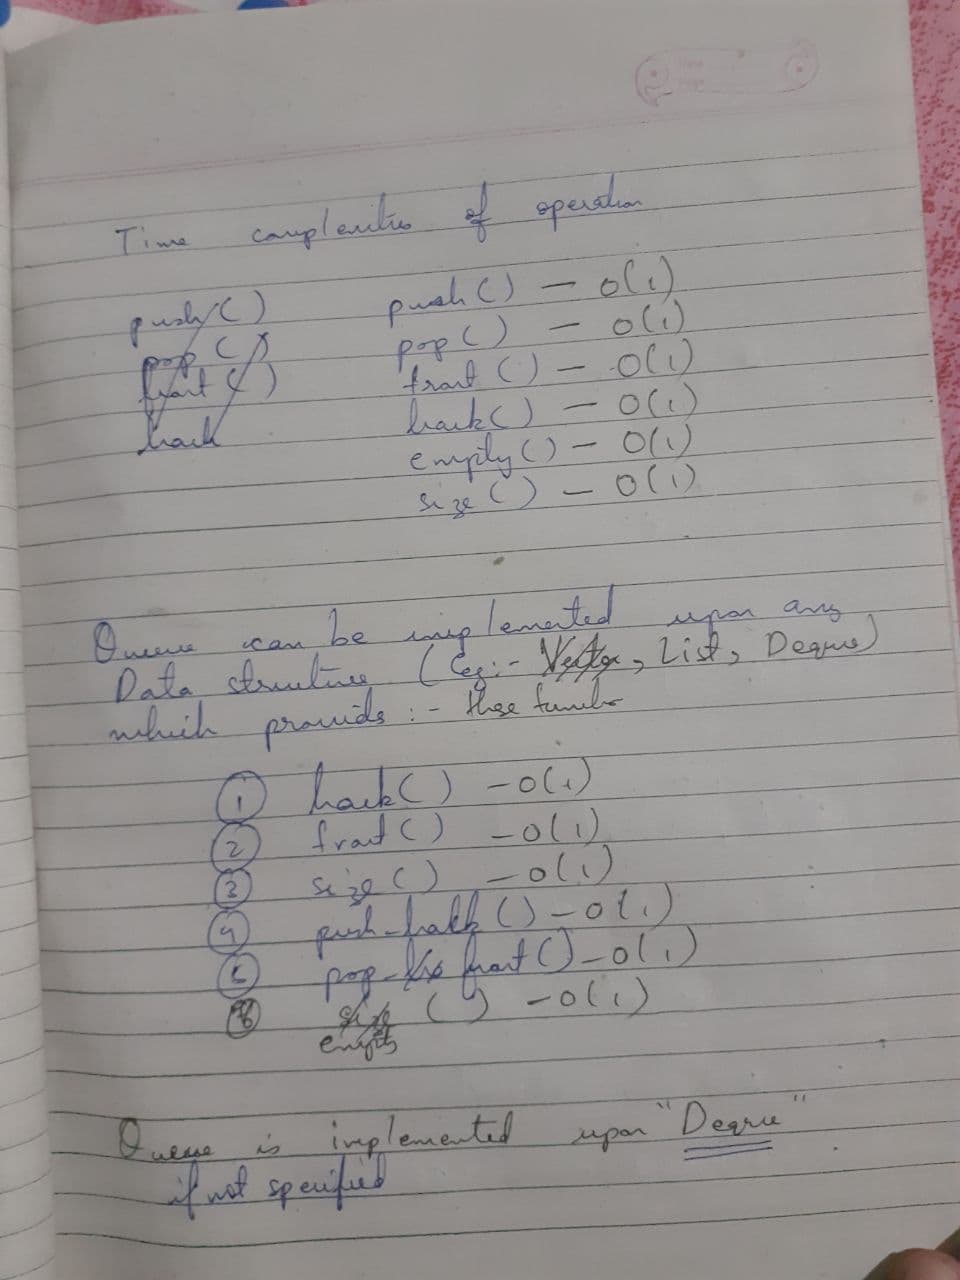 Time complexities of operation
push() push() - O(1)
pop() pop() - O(1)
front() front() - O(1)
back back() - O(1)
empty() - O(1)
size() - O(1)
Queue can be implemented upon any
Data structure (eg:- Vector, List, Deque)
which provids:- these
① back() - O(1)
② front() - O(1)
③ size() - O(1)
④ push-back() - O(1)
⑤ pop- front() - O(1)
⑥ size () - O(1)
empty
Queue is implemented upon "Deque"
if not specified